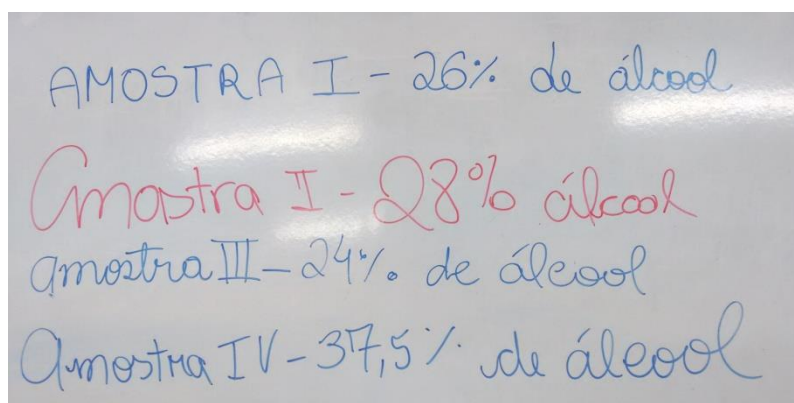 AMOSTRA I - 26% de álcool
Amostra II - 28% álcool
amostra III - 24% de álcool
Amostra IV - 37,5% de álcool